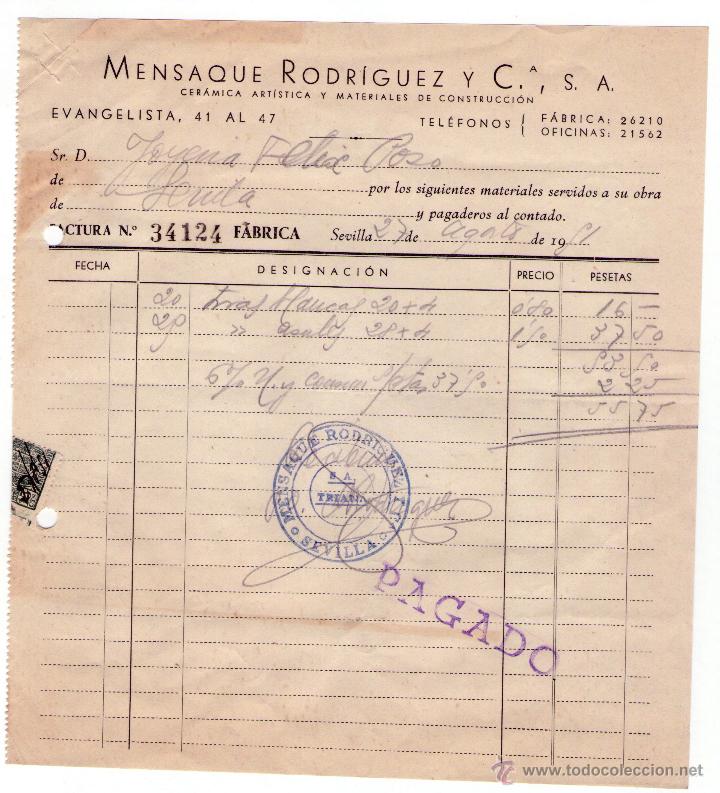 MENSAQUE RODRÍGUEZ Y C.ª, S. A.
CERÁMICA ARTÍSTICA Y MATERIALES DE CONSTRUCCIÓN
EVANGELISTA, 41 AL 47
TELÉFONOS
FÁBRICA: 26210
OFICINAS: 21562
Sr. D. Felix
de por los siguientes materiales servidos a su obra
de y pagaderos al contado.
FACTURA N.º 34124 FÁBRICA Sevilla 27 de Agosto de 1951
FECHA DESIGNACIÓN PRECIO PESETAS
20 blancas 20+4 0'80 16 -
25 " 28+4 1'50 37 50
53 50
6% 37'50 2 25
55 75
MENSAQUE RODRIGUEZ Y C.ª
S. A.
TRIANA
SEVILLA
PAGADO
© www.todocoleccion.net